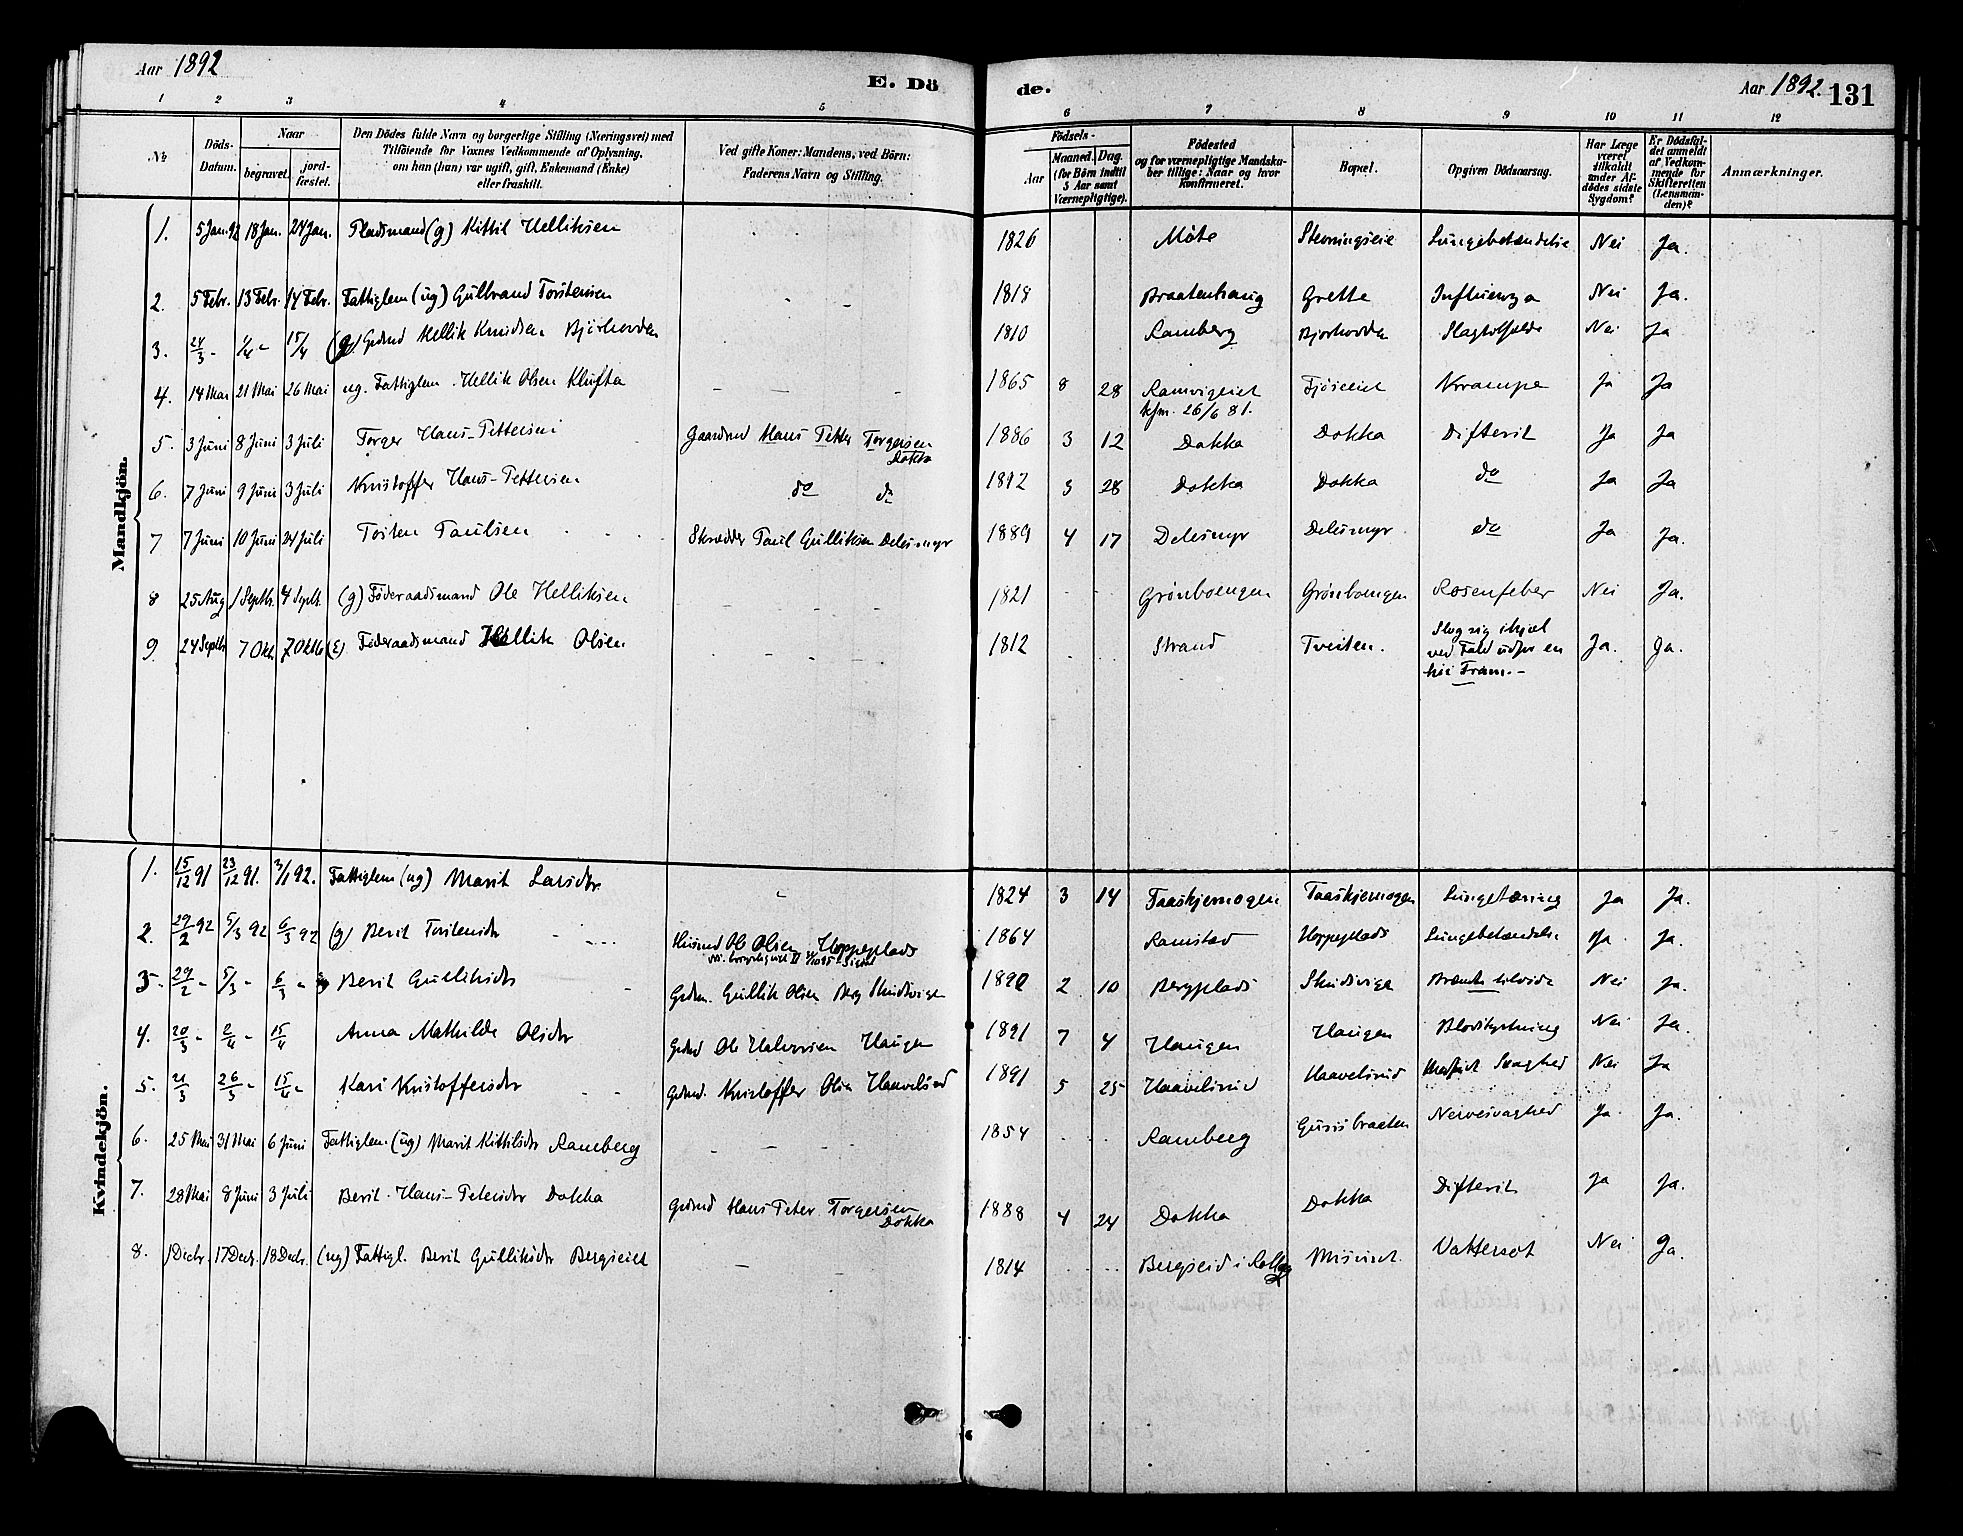 Aar 1892
E. Dö
1 2 3 4 5
№
Döds-Datum.
Naar
begravet.
jord-fæstet.
Den Dödes fulde Navn og borgerlige Stilling (Næringsvei) med
Tilföiende for Voxnes Vedkommende af Oplysning,
om han (hun) var ugift, gift, Enkemand (Enke)
eller fraskilt.
Ved gifte Koner: Mandens, ved Börn:
Faderens Navn og Stilling.
de.
Aar 1892. 131
6 7 8 9 10 11 12
Födsels-
Aar
Maaned. Dag.
(for Börn indtil
5 Aar samt
Værnepligtige).
Födested
og for værnepligtige Mandska-
ber tillige: Naar og hvor
konfirmeret.
Bopæl.
Opgiven Dödsaarsag.
Har Læge
været
tilkaldt
under Af-
dödes sidste
Sygdom?
Er Dödsfal-
det anmeldt
af Vedkom-
mende for
Skifteretten
(Lensman-
den)?
Anmærkninger.
Mandkjön.
1. 5 Jan. 92 18 Jan. 24 Jan. Pladsmand (g) Kittil Helliksen 1826 Möte Stevningseie Lungebetændelse Nei Ja.
2. 5 Febr. 13 Febr. 14 Febr. Fattiglem (ug) Gulbrand Torstensen - - 1818 Braatenhaug Grette Influenza Nei Ja.
3. 24/3 - 1/4 - 15/4 (g) Grdmd Hellik Knudsen Björhovden 1810 Ramberg Bjorhovden Slagtilfælde Nei Ja
4. 14 Mai 21 Mai 26 Mai ug. Fattiglem. Hellik Olsen Klufta - - - 1865 8 28 Ramvigeiet Fjöseiet Krampe Ja Ja
kfm. 26/6 81.
5. 3 Juni 8 Juni 3 Juli Torger Hans-Pettersen Gaardmd Hans Petter Torgersen 1886 3 12 Dokka Dokka Difterit Ja Ja
Dokka
6. 7 Juni 9 Juni 3 Juli Kristoffer Hans-Pettersen do do 1892 3 28 Dokka Dokka do Ja Ja
7 7 Juni 10 Juni 24 Juli Torsten Paulsen Skrædder Paul Gulliksen Delesmyr 1889 4 17 Delesmyr Delesmyr. do Ja Ja.
8 25 Aug 1 Septb. 4 Septb. (g) Föderaadsmand Ole Helliksen - - - 1821 Grönboengen Grönboengen Rosenfeber Nei Ja.
9. 24 Septb 7 Okt. 7 Oktb (E) Föderaadsmand Hellik Olsen - - - 1812 Strand Tveiten. Slog sig ihjel Ja. Ja.
ved Fald udfor en
höi Tram. -
Kvindekjön.
1. 15/12 91 23/12 91. 3/1 92. Fattiglem (ug) Marit Larsdtr. - 1824 3 14 Faaskjernogen Taaskjernogen Lungetæring Ja Ja.
2. 29/2 92 5/3 92 6/3 92 (g) Berit Torstensdtr Husmd Ole Olsen Hoppeplads 1864 Ramstad Hoppeplads Lungebetændelse Ja Ja.
3. 29/2 - 5/3 - 6/3 - Berit Gulliksdtr Grdm. Gullik Olsen Berg Skudsvigen 2 10 Bergplads Skudsvigen Nei Ja.
4. 20/3 - 2/4 - 15/4 Anna Mathilde Olsdtr Grdmd Ole Halvorsen Haugen 1891 7 4 Haugen Haugen Nei Ja.
5. 21/3 26/3 - 15/4 - Kari Kristoffersdtr Grdmd. Kristoffer Olsen Haavelsrud 1891 5 25 Haavelsrud Haavelsrud Medfödt Svaghed Nei Ja
6. 25 Mai 31 Mai 6 Juni Fattiglem. (ug) Marit Kittilsdtr Ramberg - - - 1854 Ramberg Gunsbraaten Nervesvaghed Ja. Ja.
7. 28 Mai 8 Juni 3 Juli Berit Hans-Petersdtr Dokka Grdmd Hans Peter Torgersen 1888 4 24 Dokka Dokka Difterit Ja Ja.
Dokka
8. 1 Decbr. 17 Decb. 18 Decbr. (ug) Fattigl. Berit Gulliksdtr Bergseiet - - 1814 Bergseid i Rollag Vattersot Nei Ja.